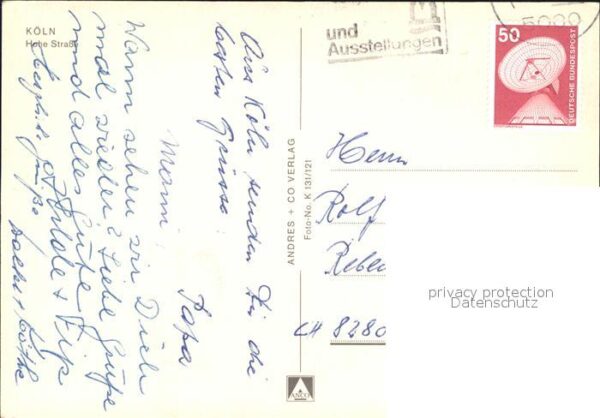 KÖLN
Hohe Straße
Aus Köln senden Dir die
besten Grüsse
Mami
Papa
Wann sehen wir Dich
mal wieder? Liebe Grüße
und alles Gute!
Hilde +
Grüße
ANDRES + CO VERLAG
Foto-No. K 131/121
ANCO
und
Ausstellungen
5000
50
DEUTSCHE BUNDESPOST
Herrn
Rolf
Rebe
CH 8280
privacy protection
Datenschutz